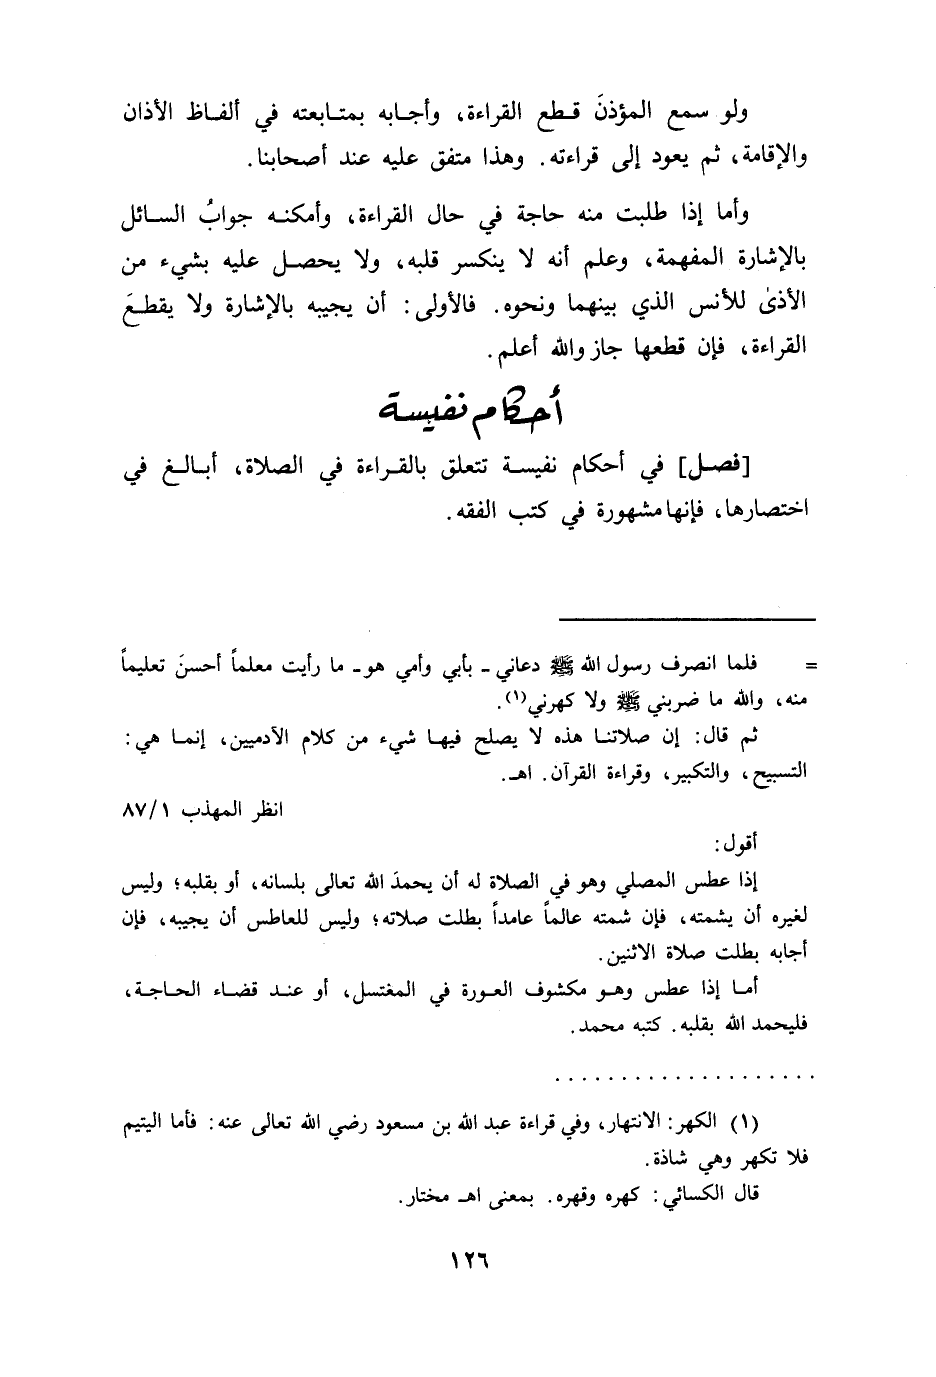 ولو سمع المؤذنَ قطع القراءة، وأجابه بمتابعته في ألفاظ الأذان
والإقامة، ثم يعود إلى قراءته. وهذا متفق عليه عند أصحابنا.
وأما إذا طلبت منه حاجة في حال القراءة، وأمكنه جوابُ السائل
بالإشارة المفهمة، وعلم أنه لا ينكسر قلبه، ولا يحصل عليه بشيء من
الأذىٰ للأنس الذي بينهما ونحوه. فالأولى: أن يجيبه بالإشارة ولا يقطعَ
القراءة، فإن قطعها جاز والله أعلم.
أحكام نفيسة
[فصل] في أحكام نفيسة تتعلق بالقراءة في الصلاة، أبالغ في
اختصارها، فإنها مشهورة في كتب الفقه.
= فلما انصرف رسول الله ﷺ دعاني - بأبي وأمي هو- ما رأيت معلماً أحسنَ تعليماً
منه، والله ما ضربني ﷺ ولا كهرني(١).
ثم قال: إن صلاتنا هذه لا يصلح فيها شيء من كلام الآدميين، إنما هي:
التسبيح، والتكبير، وقراءة القرآن. اهـ.
انظر المهذب ٨٧/١
أقول:
إذا عطس المصلي وهو في الصلاة له أن يحمدَ الله تعالى بلسانه، أو بقلبه؛ وليس
لغيره أن يشمته، فإن شمته عالماً عامداً بطلت صلاته؛ وليس للعاطس أن يجيبه، فإن
أجابه بطلت صلاة الاثنين.
أما إذا عطس وهو مكشوف العورة في المغتسل، أو عند قضاء الحاجة،
فليحمد الله بقلبه. كتبه محمد.
. . . . . . . . . . . . . . . . . . . .
(١) الكهر: الانتهار، وفي قراءة عبد الله بن مسعود رضي الله تعالى عنه: فأما اليتيم
فلا تكهر وهي شاذة.
قال الكسائي: كهره وقهره. بمعنى اهـ مختار.
١٢٦